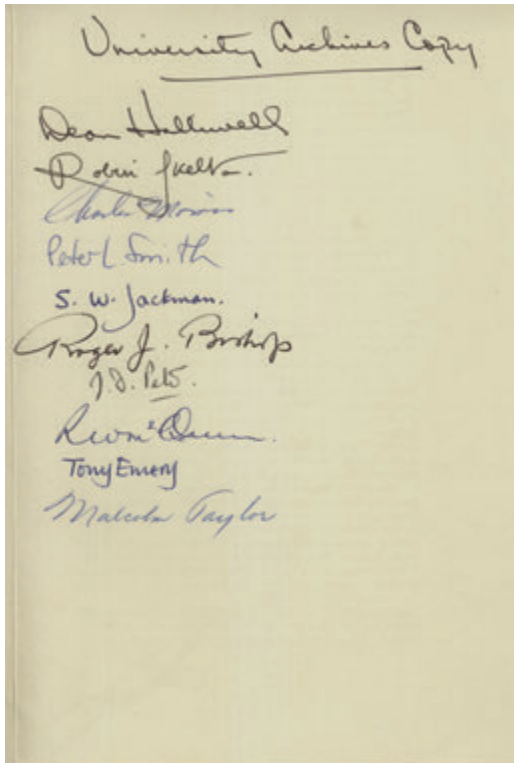 University Archives Copy
Dean Halliwell
Robin Skelton.
Charles Morison
Peter L. Smith
S. W. Jackman.
Roger J. Bishop
J. D. Peter.
Tony Emery
Malcolm Taylor